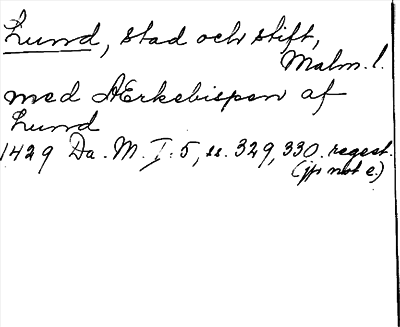 Lund, stad och stift,
Malm. l.
med ÆErkebispen af
Lund
1429 Da. M. I. 5, ss. 329, 330. regest.
(jfr not e.)